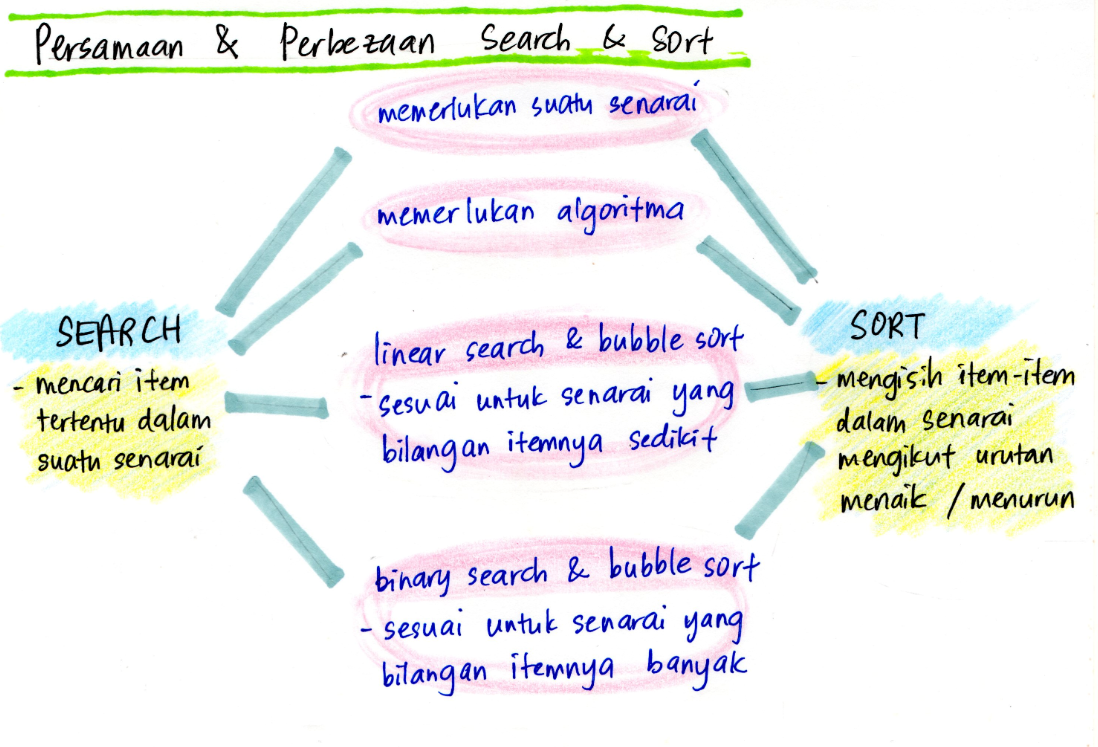 Persamaan & Perbezaan Search & Sort
memerlukan suatu senarai
memerlukan algoritma
SEARCH
- mencari item
tertentu dalam
suatu senarai
linear search & bubble sort
- sesuai untuk senarai yang
bilangan itemnya sedikit
binary search & bubble sort
- sesuai untuk senarai yang
bilangan itemnya banyak
SORT
- mengisih item-item
dalam senarai
mengikut urutan
menaik / menurun